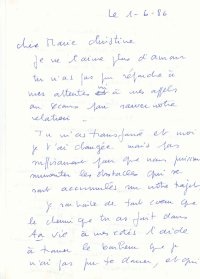 Le 1-6-86
chère Marie Christine
je ne t'aime plus d'amour
tu n'as pas pu répondre à
mes attentes et à mes appels
au secours pour sauver notre
relation.
Tu m'as transformé et moi
je t'ai changée mais pas
suffisamment pour que nous puissions
surmonter les obstacles qui se
sont accumulés sur notre trajet
je souhaite de tout coeur que
le chemin que tu as fait dans
ta vie à mes côtés t'aide
à trouver le bonheur que je
n'ai pas pu te donner, et qui